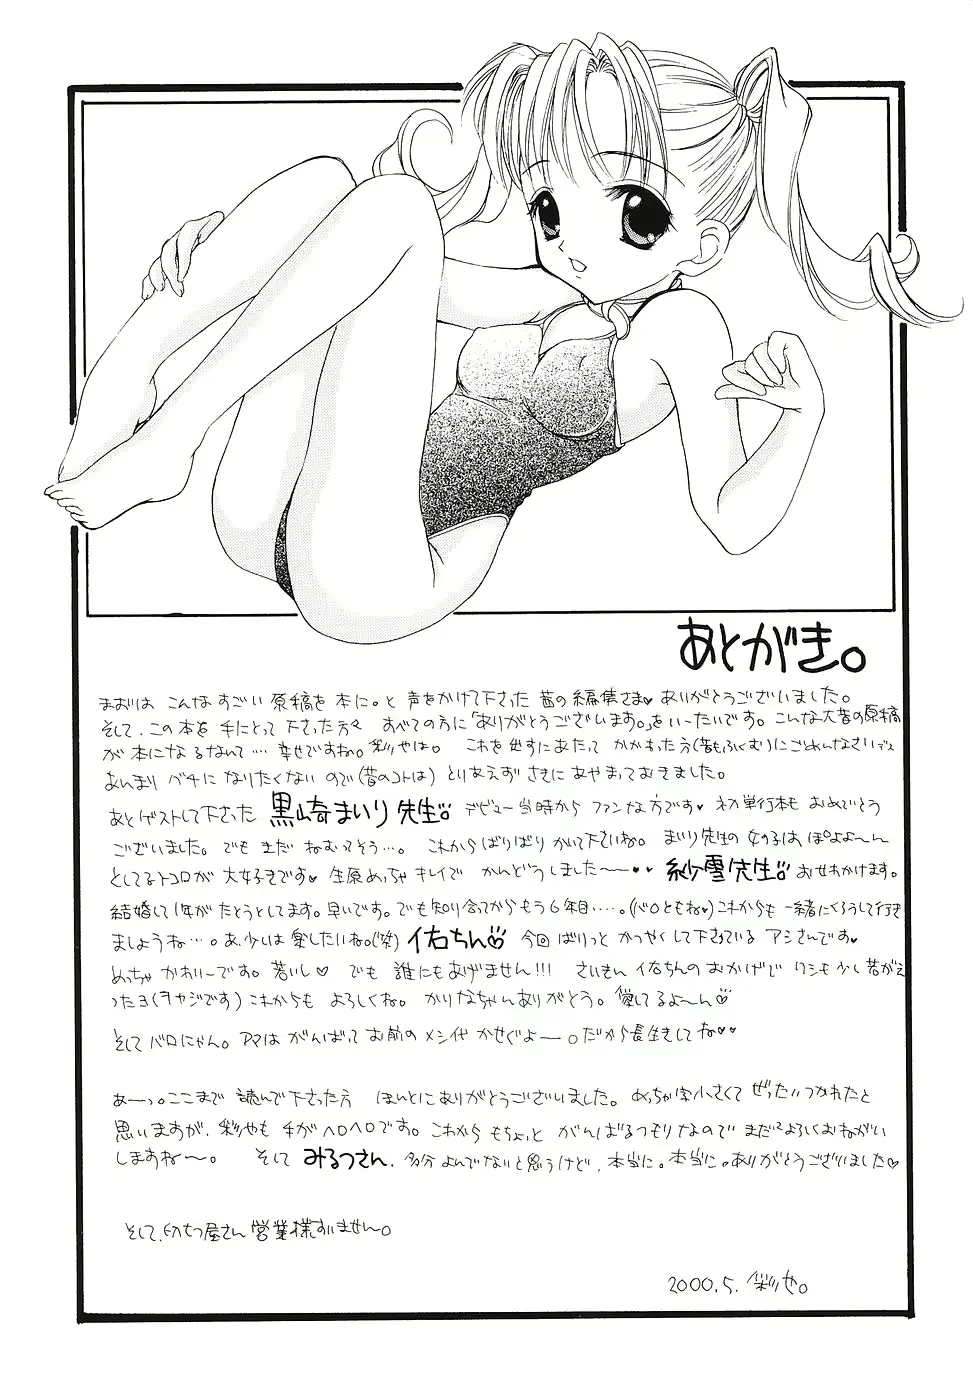 あとがき。
まずは こんなすごい 原稿を 本に。と 声をかけて下さった 茜の編集さま♥ ありがとうございました。
そして、この本を 手にとって 下さった方々 すべての方に「ありがとうございます。」を いーたいです。こんな大昔の原稿
が 本になるなんて… 幸せですね。彩やは。 これを 出すにあたって かかわった方(昔もふくむ)にごめんなさいデス
あんまり バチに なりたくない ので(昔のコトは) とりあえず さきに あやまっておきました。
あとゲストして下さった 黒崎まいり先生。 デビュー当時から ファンな方です♥ ネカ単行本も おめでとう
ございました。でも まだ ねむってそう…。 これから ばりばり かいて下さいね。 まいり先生の 女の子は ぽよよ〜ん
としてるトコロが 大好きです♥ 生原めっちゃ キレイで かんどうしました〜♥♥ 紗雪先生 おせわかけます。
結婚して1年が たとうとしてます。早いです。でも知り合ってからもう6年目……。(バロともね♥)これからも 一緒にくろうして行き
ましょうね…。あ、少しは 楽したいね。(笑) 佑ちん 今回 ばりっと かつやくして下さっている アシさんです♥
めっちゃ かわいーです。若いし♡ でも 誰にもあげません!!! さいきん 佑ちんのおかげで ワシも少し若がえ
ったヨ(ヲヤジです) これからも よろしくね。 かりなちゃんありがとう。愛してるよ〜ん♡
そして バロにゃん。アマは がんばって お前の メシ代 かせぐよー。だから長生きしてね♥♥
あーっ。ここまで 読んで下さった方 ほんとにありがとうございました。めっちゃ字小さくて ぜったいつかれたと
思いますが、彩やも 手がヘロヘロです。これから もちょっと がんばるつもりなので まだまだよろしくおねがい
しますね〜。 そして みるつさん、多分 よんでないと思うけど、本当に。本当に。ありがとうございました♡
そして、屋さん 営業様すいません。
2000.5. 彩や。